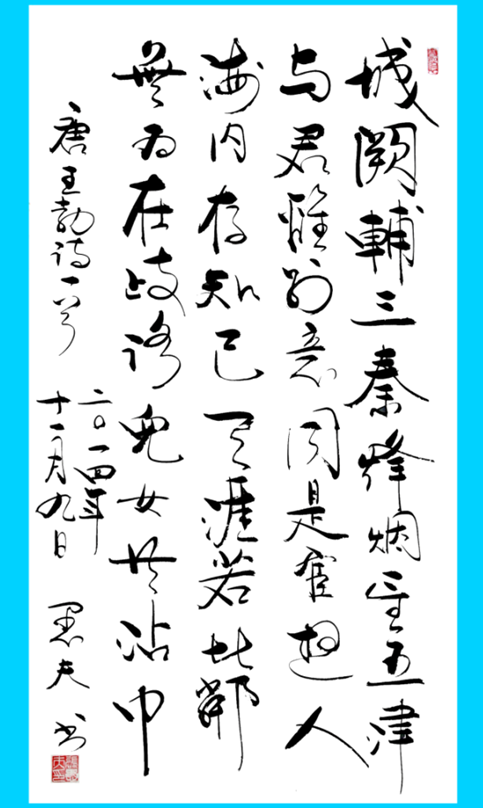 城阙輔三秦烽烟望五津
与君離别意同是宦遊人
海内存知己天涯若比鄰
無为在歧路兒女共沾巾
唐王勃诗一首
二〇一四年
十一月九日
墨夫书